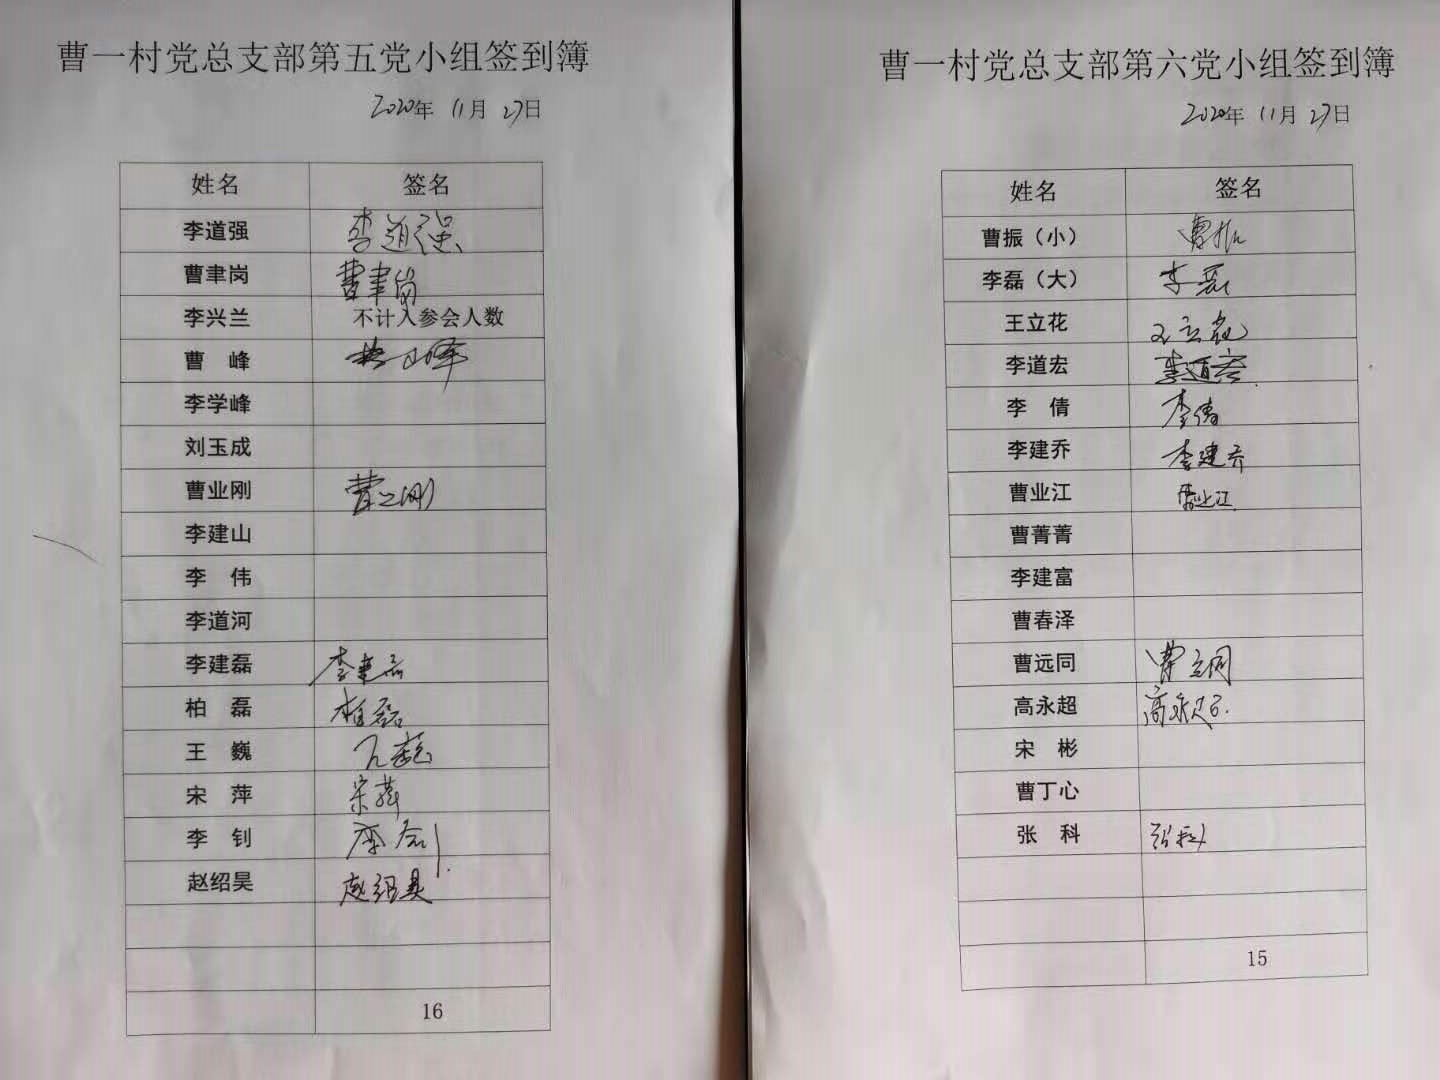 曹一村党总支部第五党小组签到簿
2020年 11月 27日
姓名 签名
李道强 李道强
曹聿岗 曹聿岗
李兴兰 不计入参会人数
曹 峰 曹峰
李学峰
刘玉成
曹业刚 曹业刚
李建山
李 伟
李道河
李建磊 李建磊
柏 磊 柏磊
王 巍 王巍
宋 萍 宋萍
李 钊 李钊
赵绍昊 赵绍昊
16
曹一村党总支部第六党小组签到簿
2020年 11月 27日
姓名 签名
曹振（小） 曹振
李磊（大） 李磊
王立花 王立花
李道宏 李道宏
李 倩 李倩
李建乔 李建乔
曹业江 曹业江
曹菁菁
李建富
曹春泽
曹远同 曹远同
高永超 高永超
宋 彬
曹丁心
张 科 张科
15